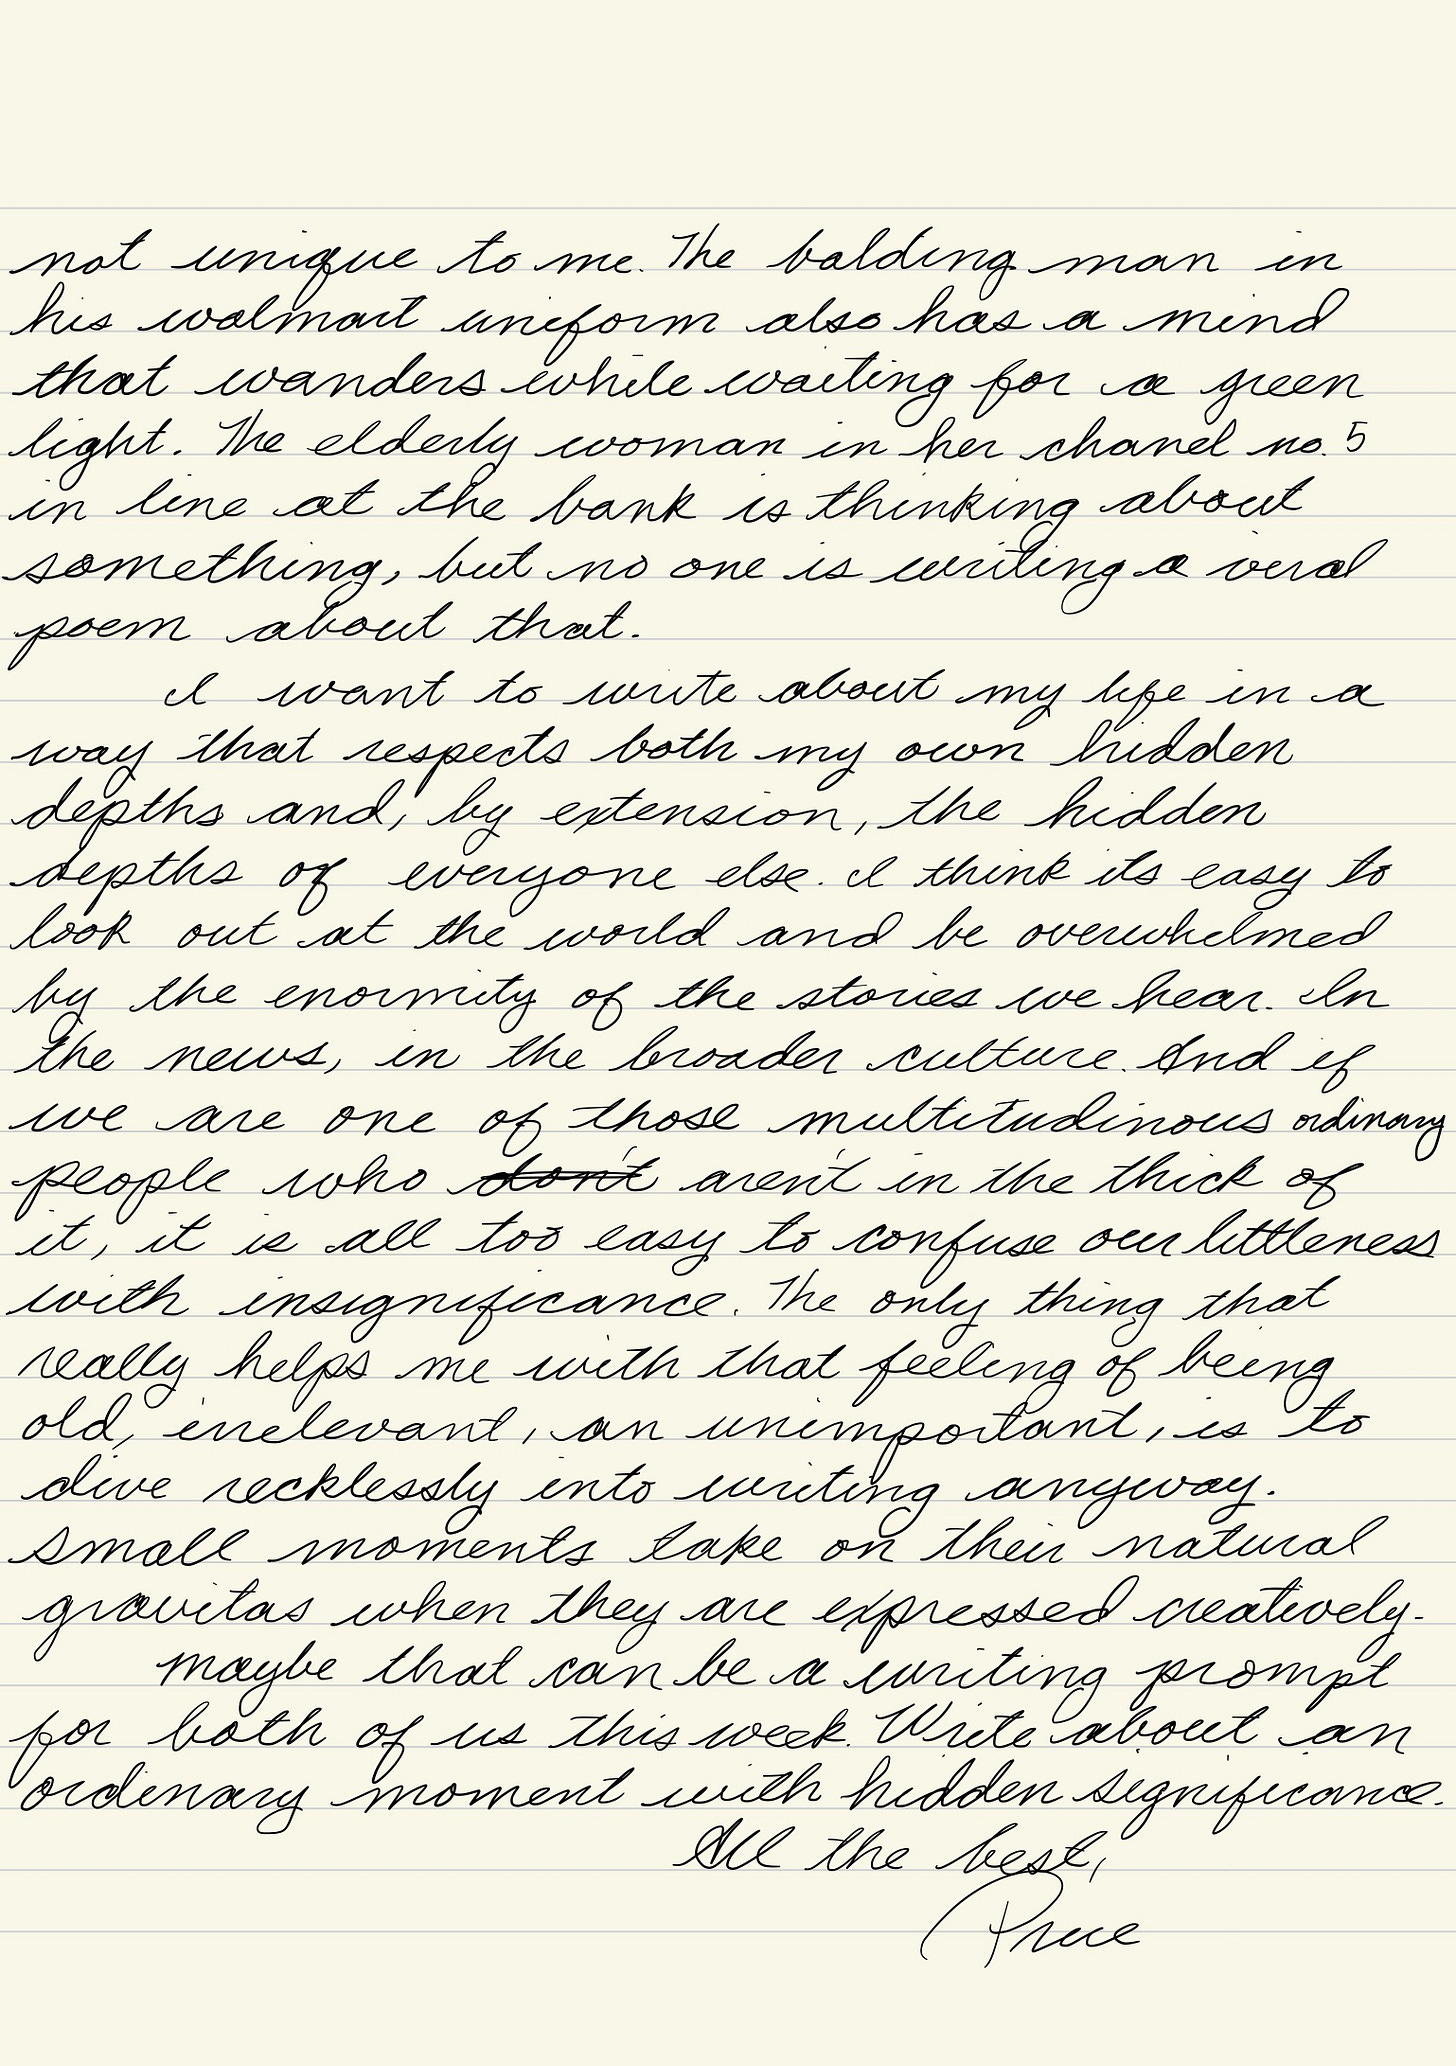 not unique to me. The balding man in
his walmart uniform also has a mind
that wanders while waiting for a green
light. The elderly woman in her chanel no. 5
in line at the bank is thinking about
something, but no one is writing a viral
poem about that.
I want to write about my life in a
way that respects both my own hidden
depths and, by extension, the hidden
depths of everyone else. I think its easy to
look out at the world and be overwhelmed
by the enormity of the stories we hear. In
the news, in the broader culture. And if
we are one of those multitudinous ordinary
people who don't aren't in the thick of
it, it is all too easy to confuse our littleness
with insignificance. The only thing that
really helps me with that feeling of being
old, irrelevant, an unimportant, is to
dive recklessly into writing anyway.
Small moments take on their natural
gravitas when they are expressed creatively.
maybe that can be a writing prompt
for both of us this week. Write about an
ordinary moment with hidden significance.
All the best,
Prue